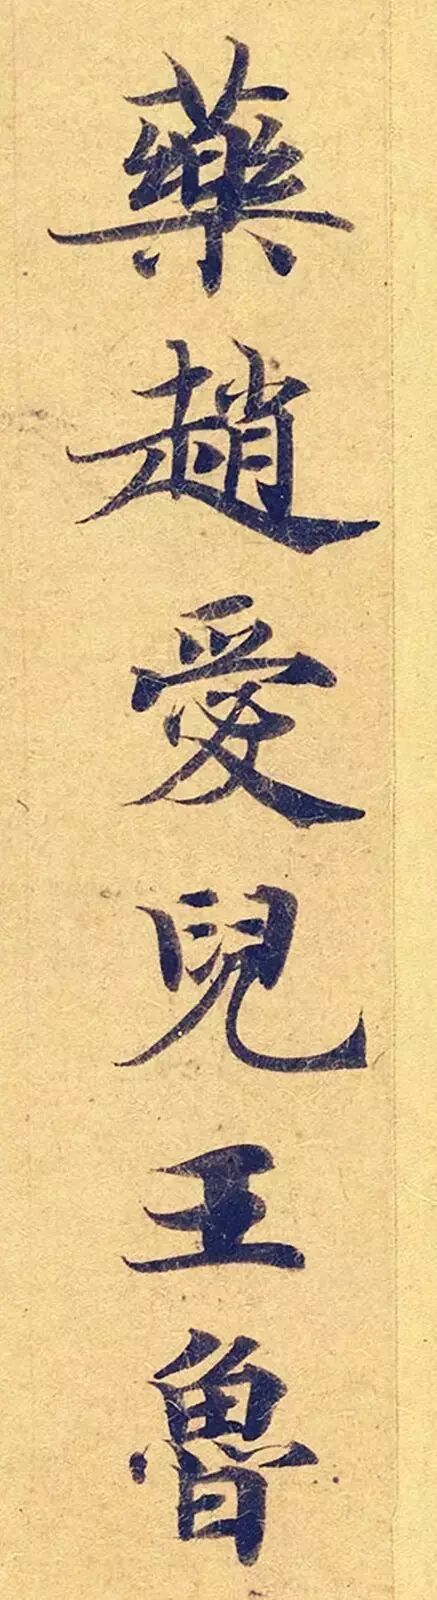 藥趙愛兒王魯